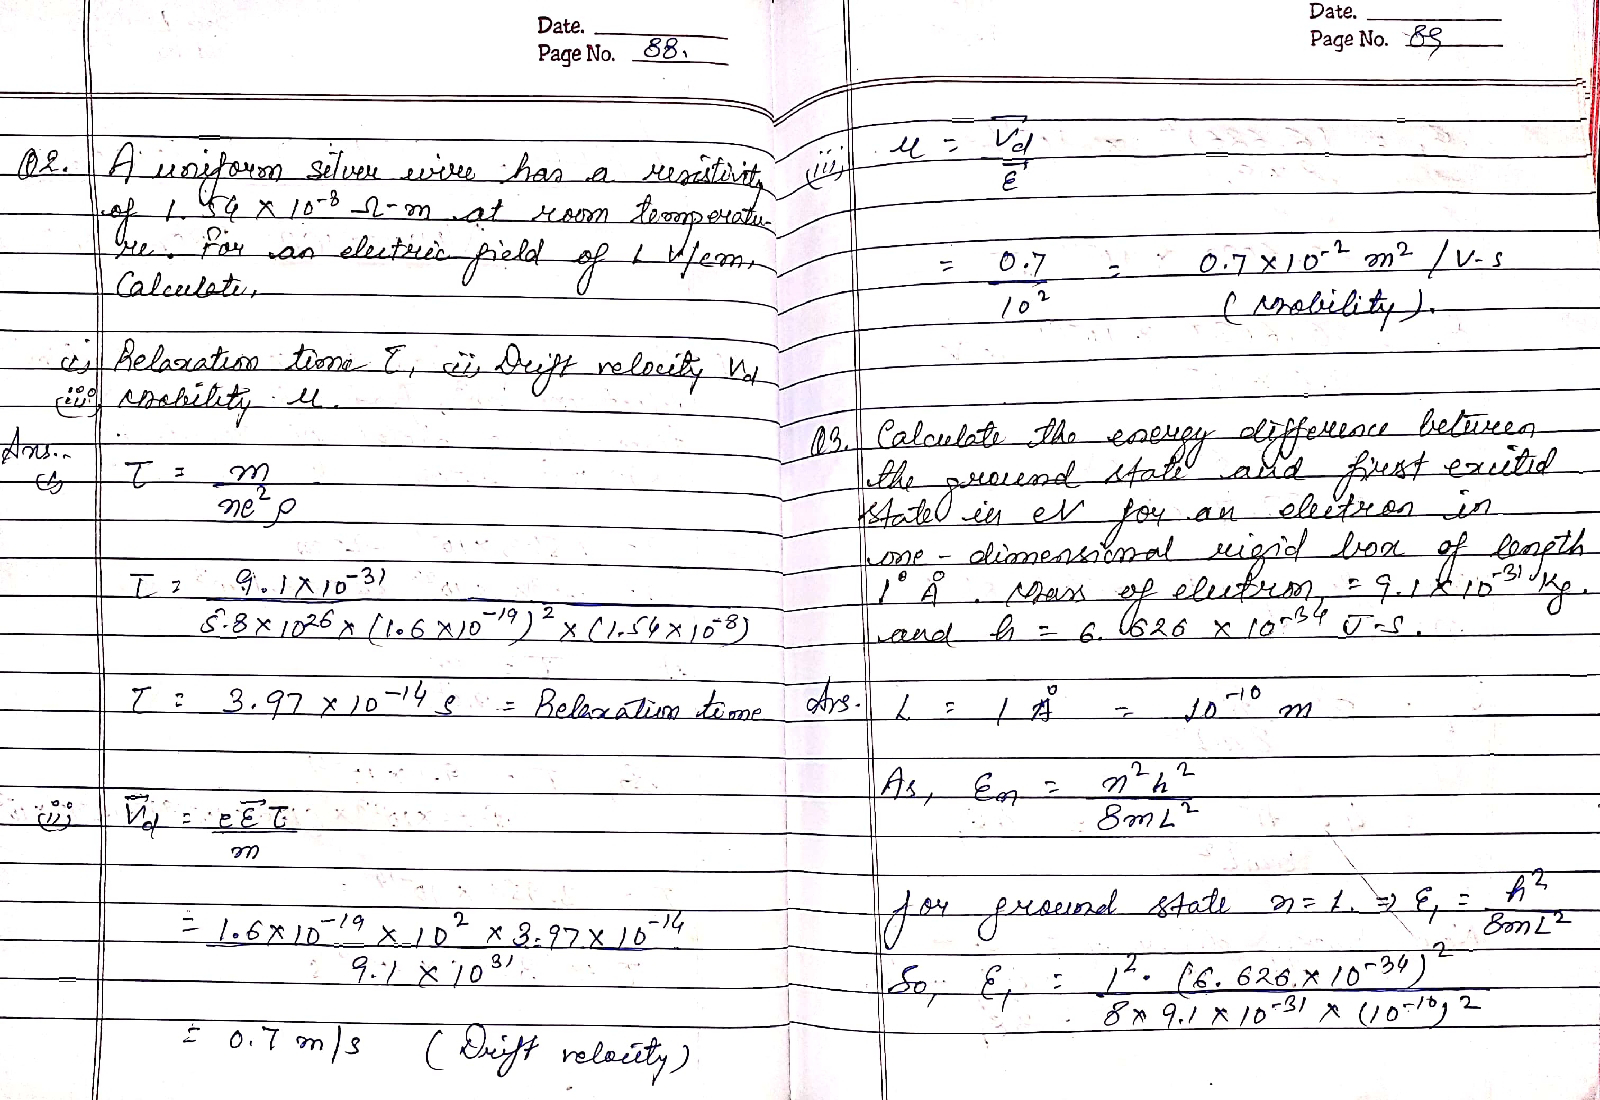 Date.
Page No. 88.
Q2. A uniform silver wire has a resistivity
of 1.54 × 10⁻⁸ Ω-m at room temperatu-
re. For an electric field of 1 V/cm,
Calculate,
(i) Relaxation time τ, (ii) Drift velocity Vd
(iii) mobility μ.
Ans.
(i) τ = m
ne²ρ
τ = 9.1×10⁻³¹
5.8×10²⁶ × (1.6×10⁻¹⁹)² × (1.54×10⁻⁸)
τ = 3.97 × 10⁻¹⁴ s = Relaxation time
(ii) V⃗d = eE⃗τ
m
= 1.6×10⁻¹⁹ × 10² × 3.97×10⁻¹⁴
9.1 × 10³¹
= 0.7 m/s (Drift velocity)
Date.
Page No. 89
(iii) μ = V⃗d
E⃗
= 0.7 = 0.7×10⁻² m² / V-s
10²
(mobility).
Q3. Calculate the energy difference between
the ground state and first excited
state in eV for an electron in
one-dimensional rigid box of length
1° Å. Mass of electron, = 9.1×10⁻³¹ Kg.
and h = 6.626 × 10⁻³⁴ J-s.
Ans. L = 1 Å = 10⁻¹⁰ m
As, En = n²h²
8mL²
for ground state n=1. ⇒ E₁ = h²
8mL²
So, E₁ = 1². (6.626×10⁻³⁴)²
8×9.1×10⁻³¹ × (10⁻¹⁰)²